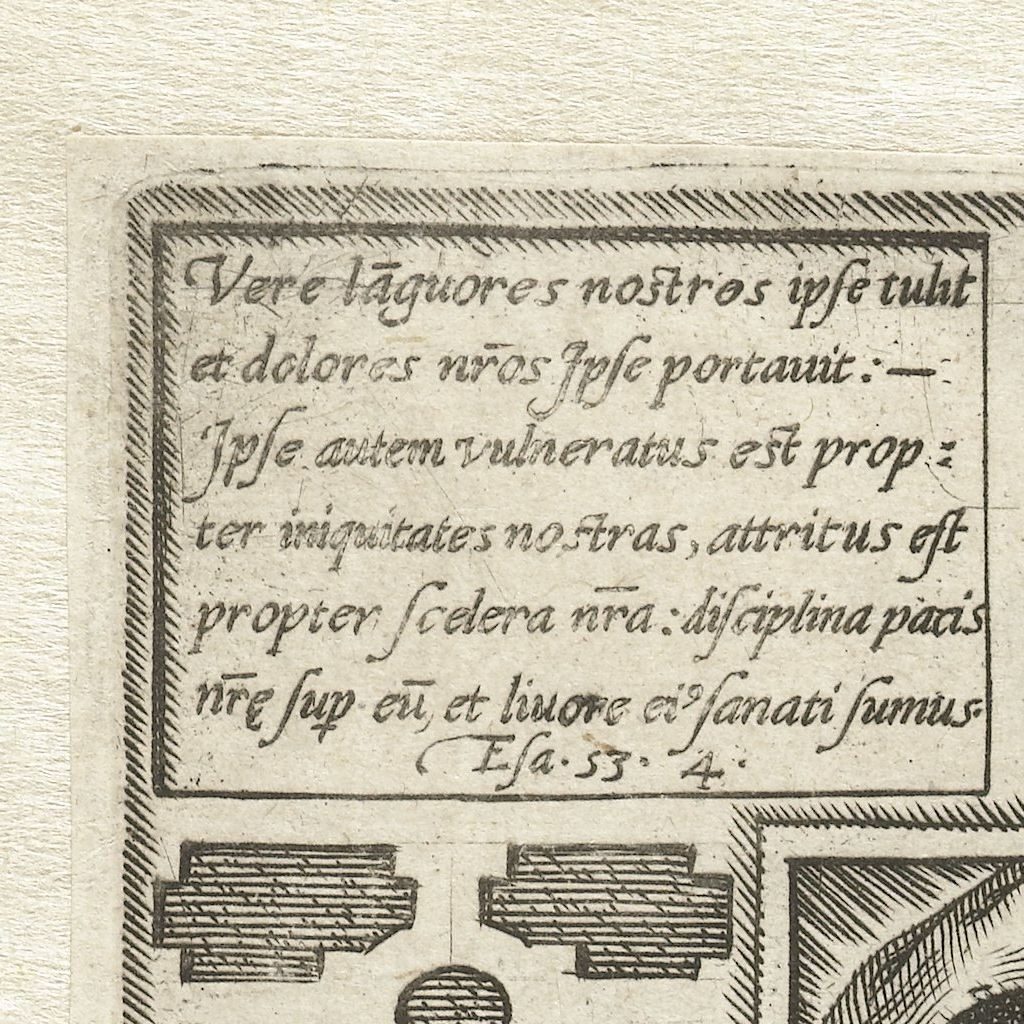 Vere lāguores nostros ipſe tulit
et dolores nr̄os Jpſe portauit : —
Jpſe autem vulneratus est prop :
ter iniquitates nostras, attritus eſt
propter ſcelera nr̄a : diſciplina pacis
nr̄ę ſuꝑ eū, et liuore ei⁹ ſanati ſumus.
Eſa . 53 . 4 .